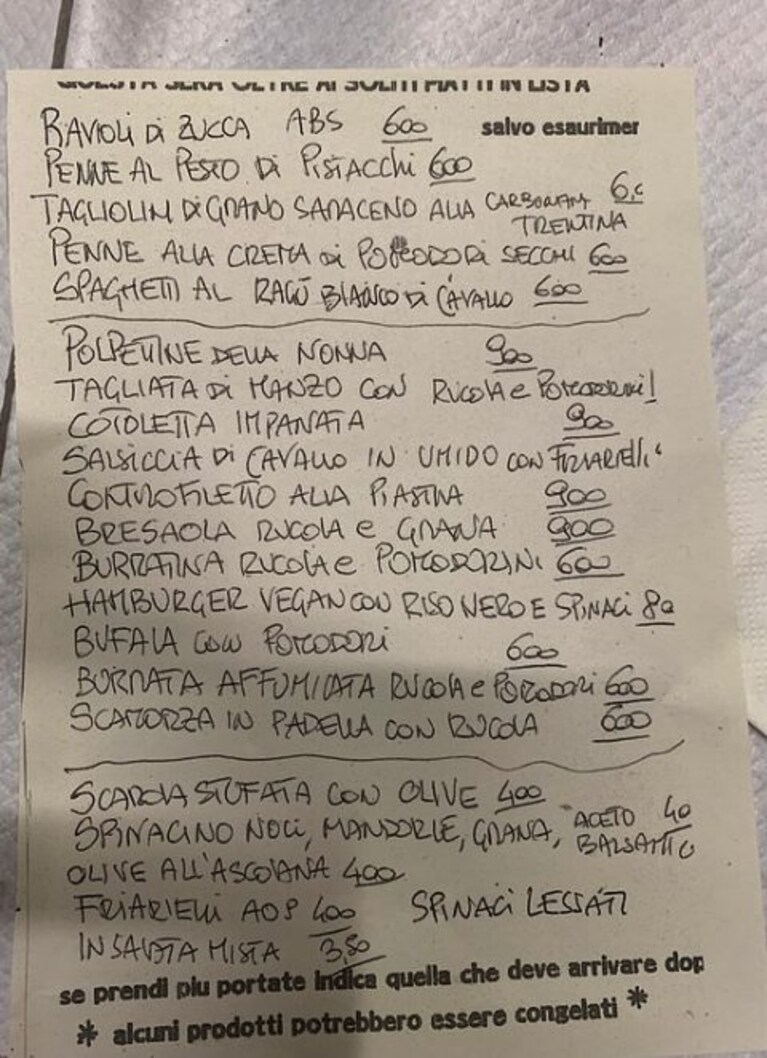 QUESTA SERA OLTRE AI SOLITI PIATTI IN LISTA
RAVIOLI DI ZUCCA ABS 600 salvo esaurimer
PENNE AL PESTO DI PISTACCHI 600
TAGLIOLINI DI GRANO SARACENO ALLA CARBONARA TRENTINA 6,0
PENNE ALLA CREMA DI POMODORI SECCHI 600
SPAGHETTI AL RAGÙ BIANCO DI CAVALLO 600
POLPETTINE DELLA NONNA 900
TAGLIATA DI MANZO CON RUCOLA e POMODORINI
COTOLETTA IMPANATA 900
SALSICCIA DI CAVALLO IN UMIDO CON FRIARIELLI
CONTROFILETTO ALLA PIASTRA 900
BRESAOLA RUCOLA e GRANA 900
BURRATINA RUCOLA e POMODORINI 600
HAMBURGER VEGAN CON RISO NERO E SPINACI 80
BUFALA CON POMODORI 600
BURRATA AFFUMICATA RUCOLA e POMODORI 600
SCAMORZA IN PADELLA CON RUCOLA 600
SCAROLA STUFATA CON OLIVE 400
SPINACINO NOCI, MANDORLE, GRANA, ACETO BALSAMICO 40
OLIVE ALL'ASCOLANA 400
FRIARIELLI AOP 400 SPINACI LESSATI
INSALATA MISTA 3,50
se prendi piu portate indica quella che deve arrivare dop
* alcuni prodotti potrebbero essere congelati *